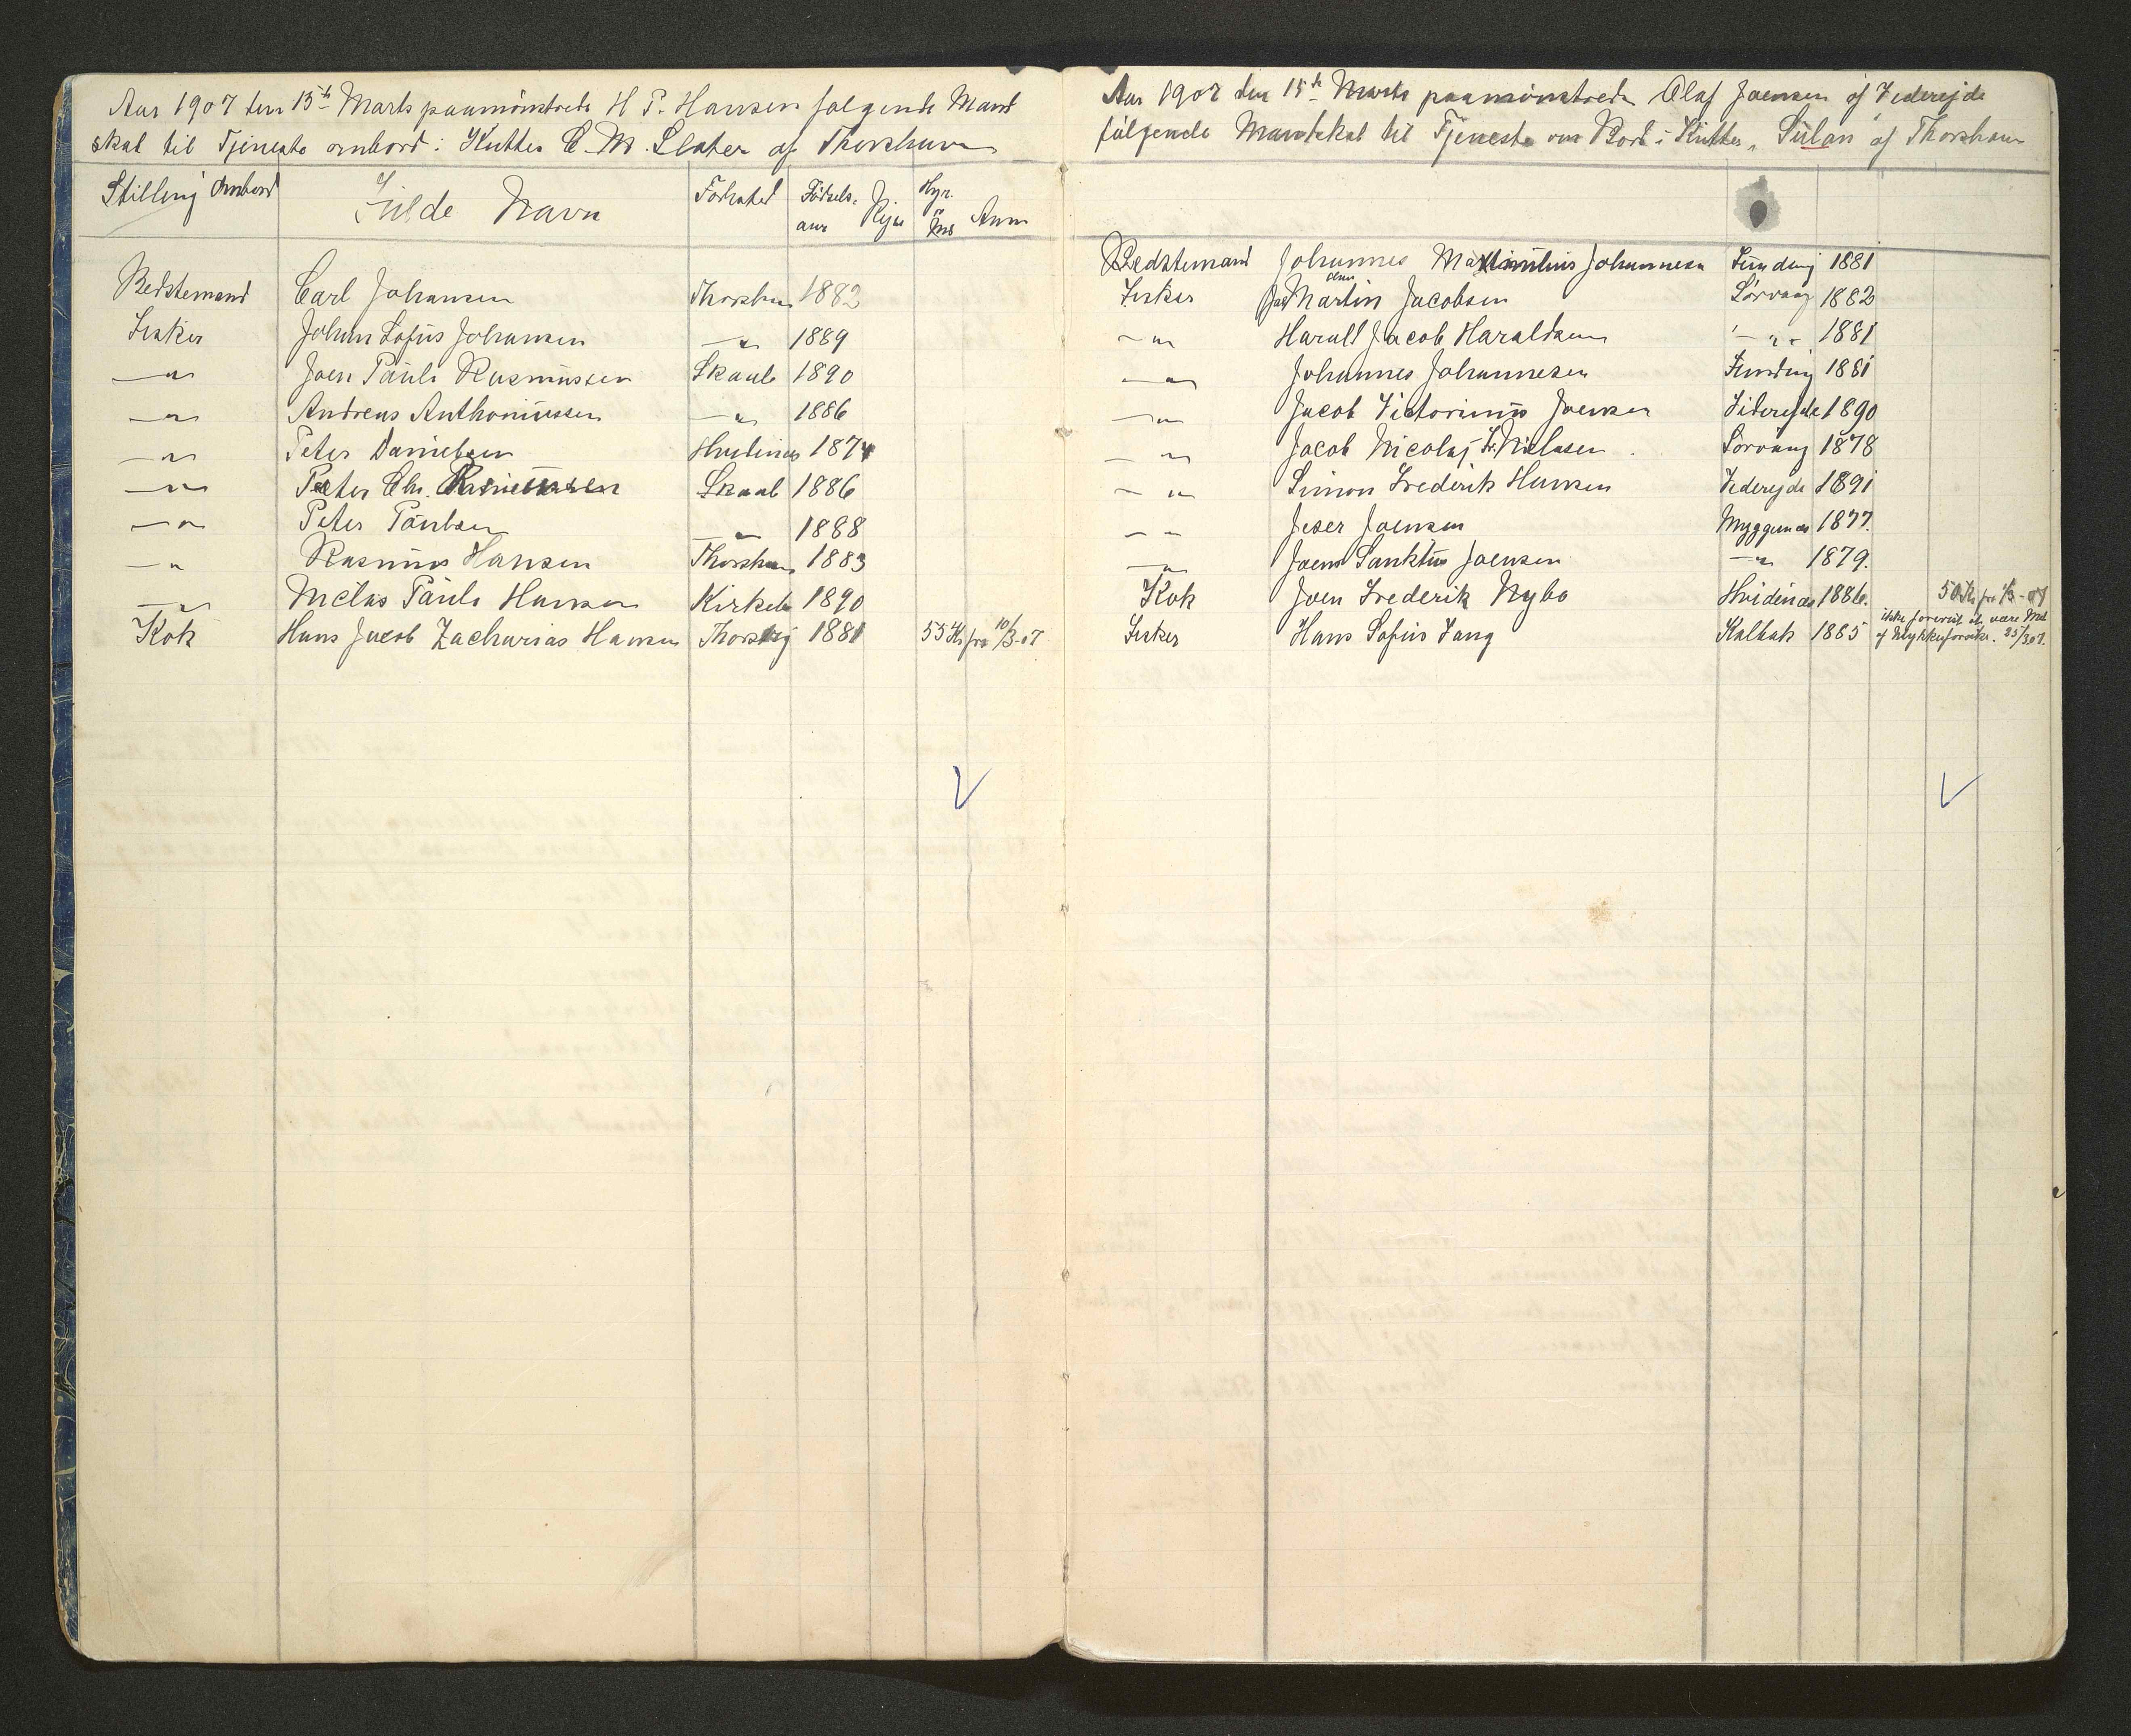 Aar 1907 den 15de Marts paamönstrede H P. Hansen følgende Mand
skab til Tjeneste ombord i Kutter C. M. Slater af Thorshavn
Stilling Ombord Fulde Navn Födsted Födsels. aar Rejse Hyr. Anm
Bedstemand Carl Johansen Thorshavn 1882
Fisker Johan Sofus Johansen —"— 1889
—"— Joen Pauli Rasmussen Skaale 1890
—"— Andreas Anthoniussen —"— 1886
—"— Peter Danielsen Hvidenæs 1874
—"— Peter Chr. Rasmussen Skaale 1886
—"— Peter Paulsen —"— 1888
—"— Rasmus Hansen Thorshavn 1883
—"— Niclas Pauli Hansen Kirkebø 1890
Kok Hans Jacob Zacharias Hansen Thorsvig 1881 55 Kr fra 10/3-07
V
Aar 1907 den 15de Marts paamönstrede Olaf Joensen af Viderejde
følgende Mandskab til Tjeneste om Bord i Kutter „Sulan" af Thorshavn
Bedstemand Johannes Maximilius Johannesen Funding 1881
Fisker Martin Jacobsen Sörvaag 1882
—"— Harald Jacob Haraldsen —"— 1881
—"— Johannes Johannesen Funding 1881
—"— Jacob Victorinus Joensen Viderejde 1890
—"— Jacob Nicolaj Fr. Niclasen Sörvaag 1878
—"— Simon Frederik Hansen Viderejde 1891
—"— Joensen Myggenæs 1877.
—"— Joen Sanktus Joensen —"— 1879.
Kok Joen Frederik Nybo Hvidenæs 1886. 50 Kr fra 1/3-07
Fisker Hans Sofus Vang Kalbak 1885 ikke forevist at være Med
af Ulykkesforsikr. 25/3 07.
V